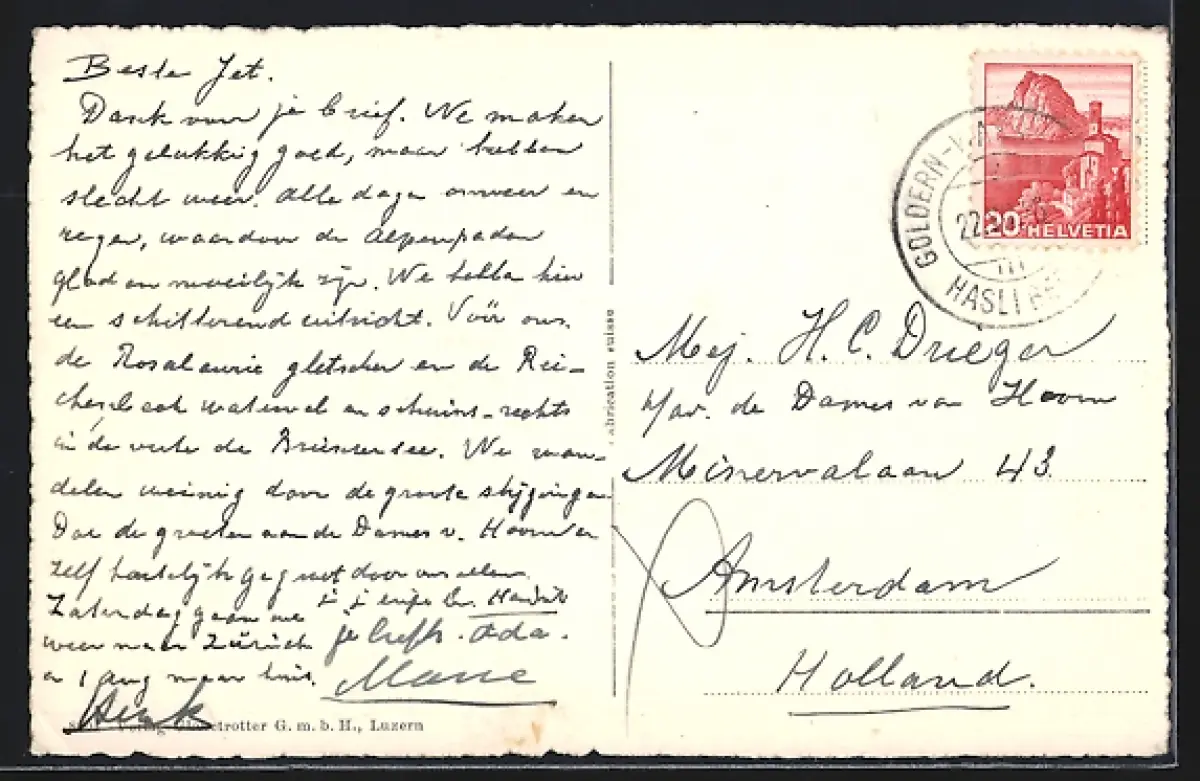 Beste Jet.
Dank voor je brief. We maken
het gelukkig goed, maar hebben
slecht weer. Alle dagen onweer en
regen, waardoor de Alpenpaden
glad en moeilijk zijn. We hebben hier
een schitterend uitzicht. Vóór ons
de Rosalauie gletscher en de Rei-
chenbach waterval en schuins-rechts
in de verte de Brienzersee. We wan-
delen weinig door de groote stijgingen.
Doe de groeten aan de Dames v. Hoorn en
zelf hartelijk gegroet door ons allen.
Zaterdag gaan we
weer naar Zürich
en 1 Aug naar huis.
je liefh. Ada.
Henk
Verlag Globetrotter G. m. b. H., Luzern
Fabrication suisse
20 HELVETIA
GOLDERN
HASLIBE
22
Mej. H. C. Drieger
p/ar. de Dames van Hoorn
Minervalaan 43.
Amsterdam
Holland.